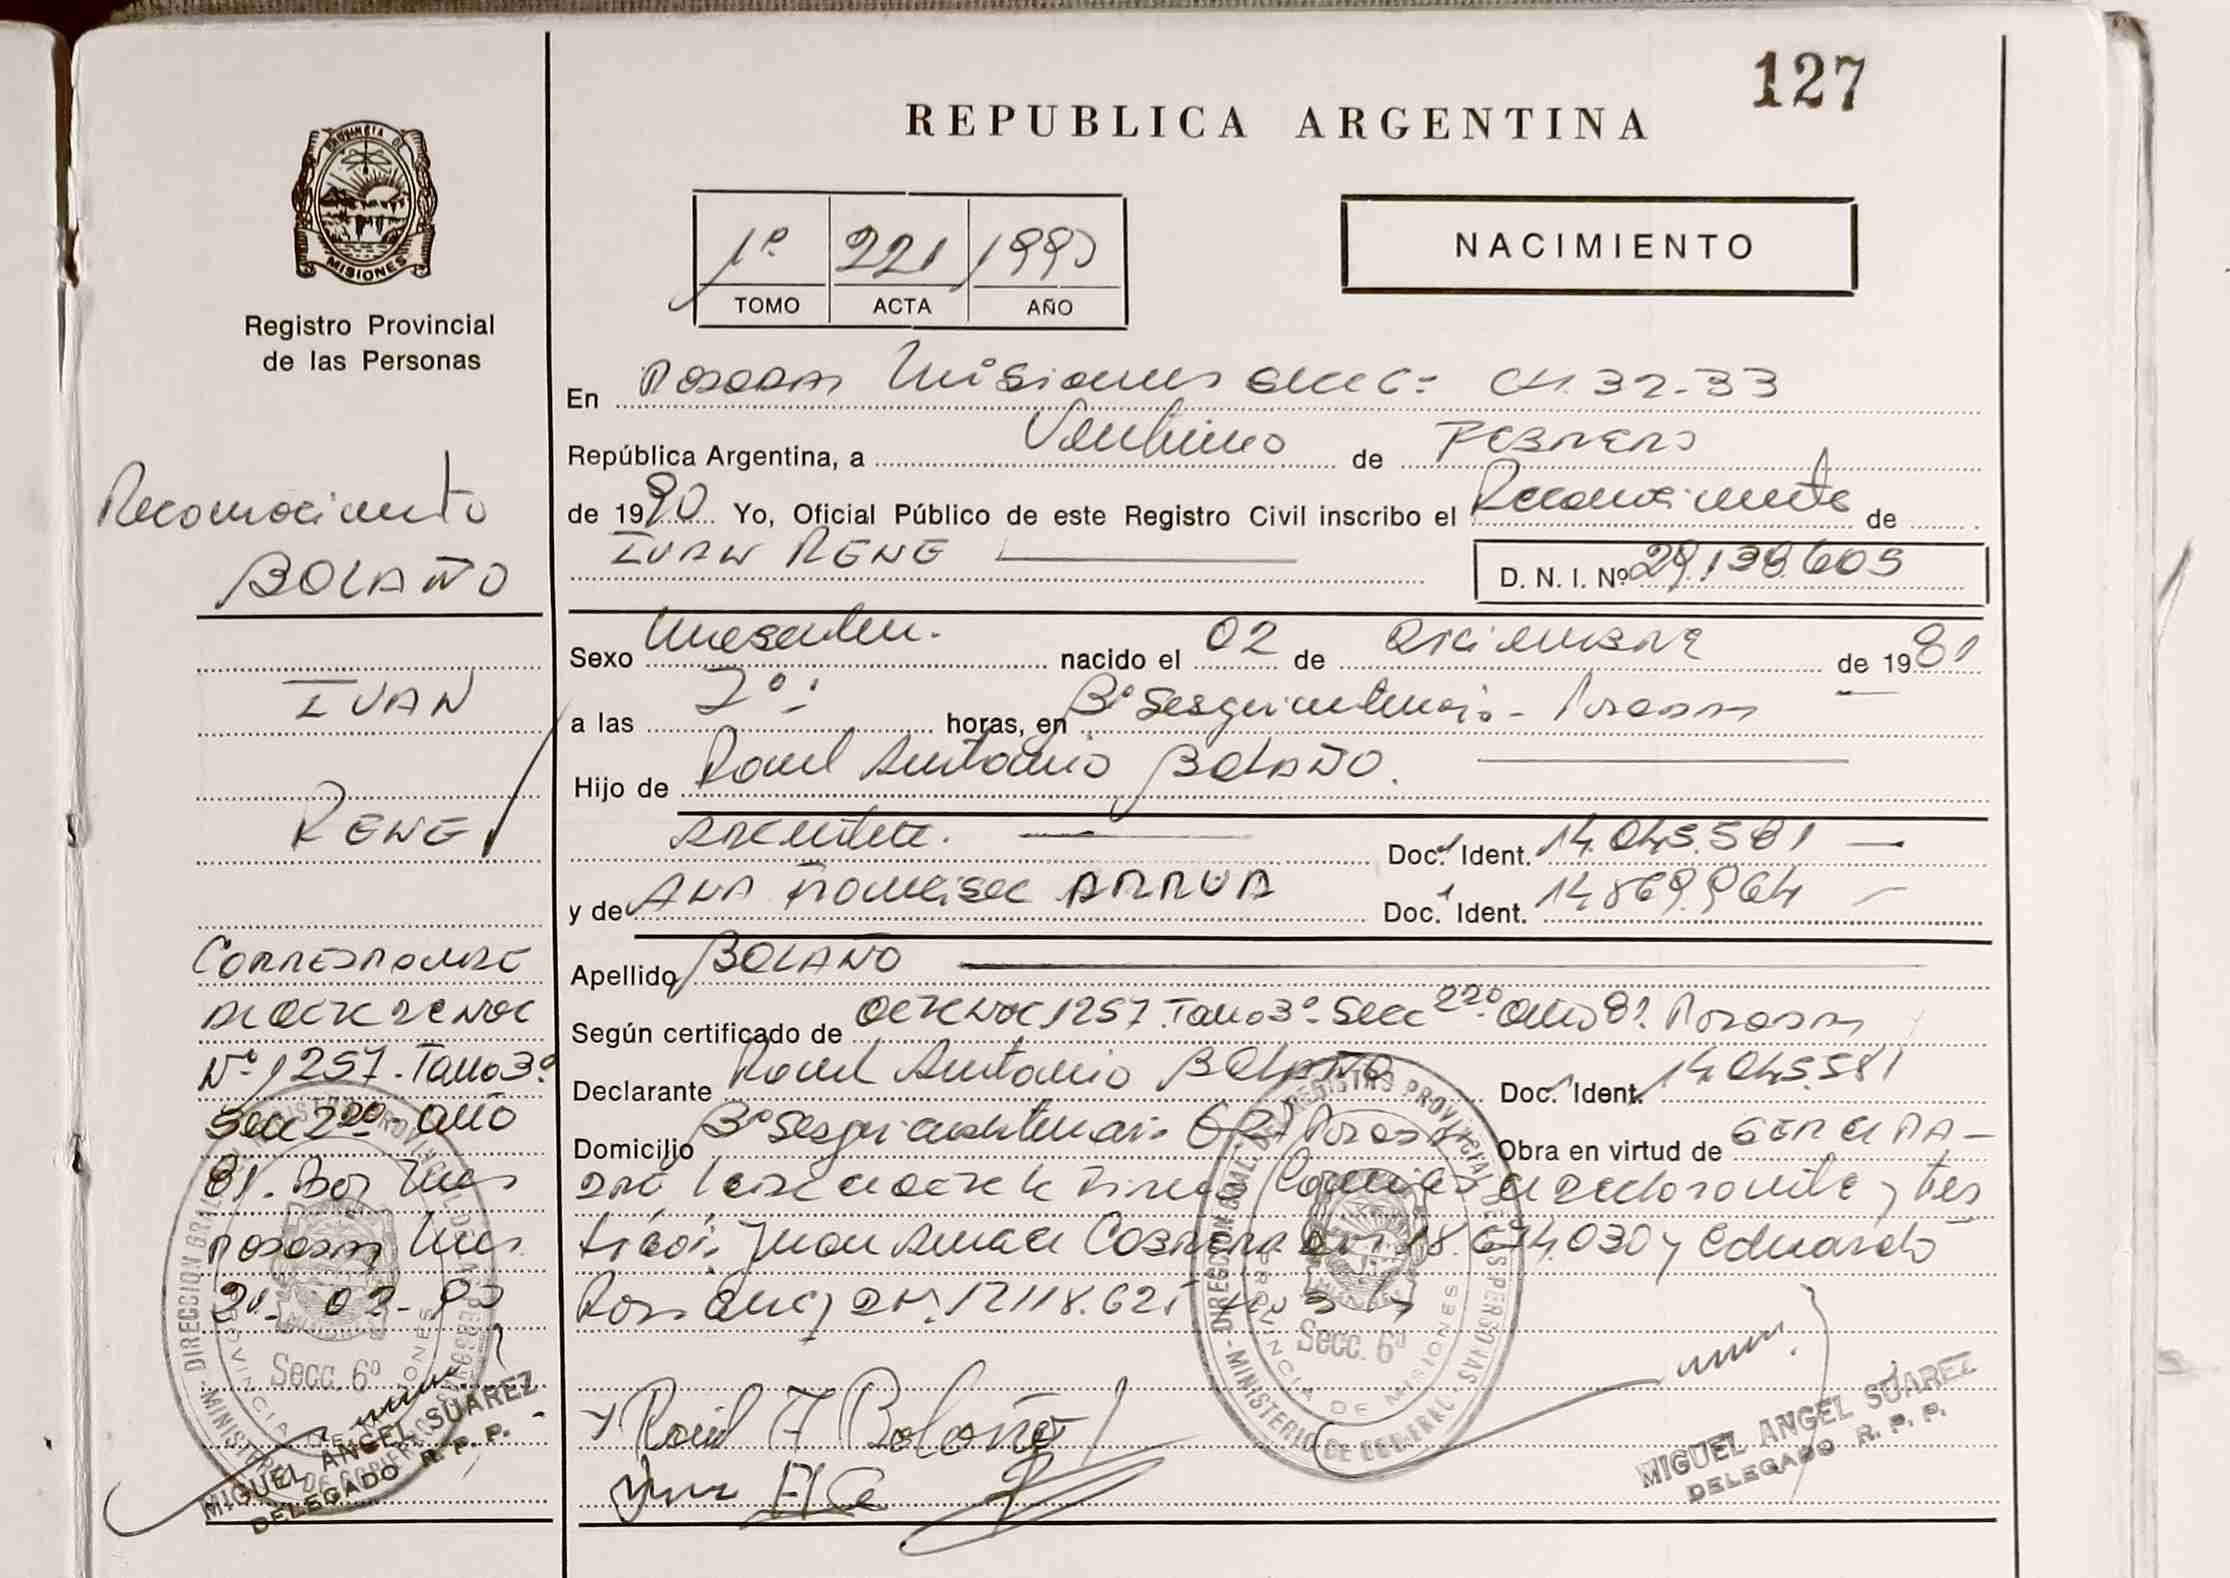 127
REPUBLICA ARGENTINA
PROVINCIA DE
MISIONES
Registro Provincial
de las Personas
NACIMIENTO
1º 221 1990
TOMO ACTA AÑO
En Posadas Misiones 32-33
República Argentina, a Veintiuno de FEBRERO
de 1990 Yo, Oficial Público de este Registro Civil inscribo el Reconocimiento de
IVAN RENE D. N. I. Nº 29.138.605
Sexo Masculin. nacido el 02 de Diciembre de 1981
a las horas, en Bº Sesquicentenario - Posadas
Hijo de Raul Antonio BOLAÑO.
Doc. Ident. 14.045.581
y de ANA Francisca ARRUA Doc. Ident. 14.869.964
Apellido BOLAÑO
Según certificado de 1257. Tomo 3º. Secc 22º Año 81. Posadas
Declarante Raul Antonio BOLAÑO Doc. Ident. 14.045.581
Domicilio Bº Sesquicentenario Posadas Obra en virtud de
declarante y tes
tigos: Juan CABRERA 18.674.030 y Eduardo
Raúl A Bolaño
Reconocimiento
BOLAÑO
IVAN
RENE
CORRESPONDE
Nº 1257. Tomo 3º
Secc 22º Año
81.
Posadas
21-02-90
DIRECCION GRAL. DEL REGISTRO PROVINCIAL DE LAS PERSONAS
MINISTERIO DE GOBIERNO
PROVINCIA DE MISIONES
Secc. 6º
MIGUEL ANGEL SUAREZ
DELEGADO R. P. P.
DIRECCION GRAL. DEL REGISTRO PROVINCIAL DE LAS PERSONAS
MINISTERIO DE GOBIERNO
PROVINCIA DE MISIONES
Secc. 6º
MIGUEL ANGEL SUAREZ
DELEGADO R. P. P.